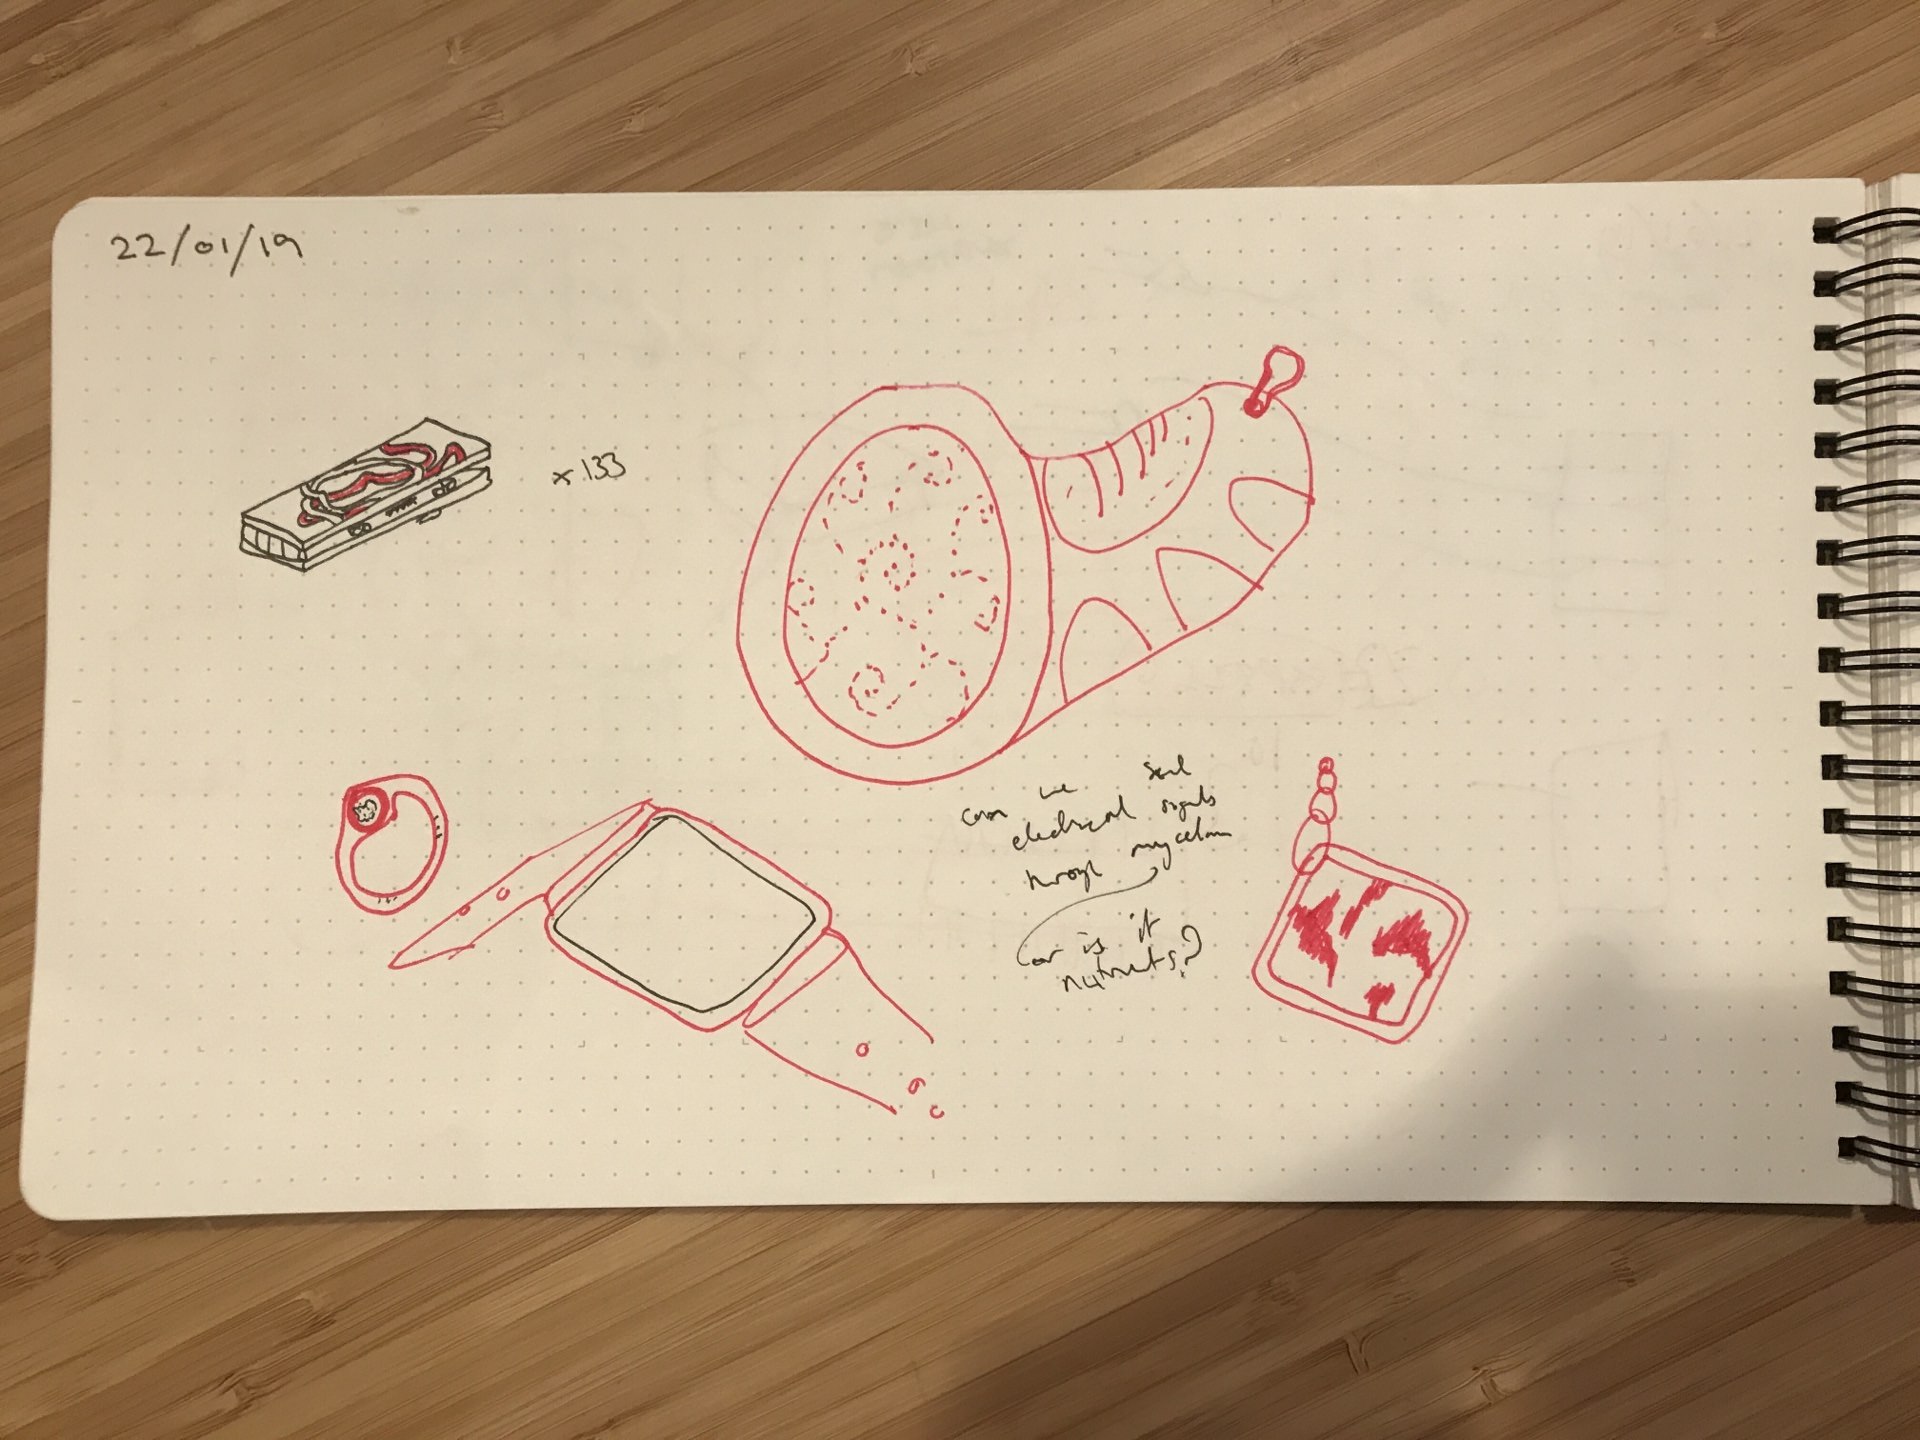 22/01/19
x 133
can we send
electrical signals
through mycelium
or is it
nutrients?